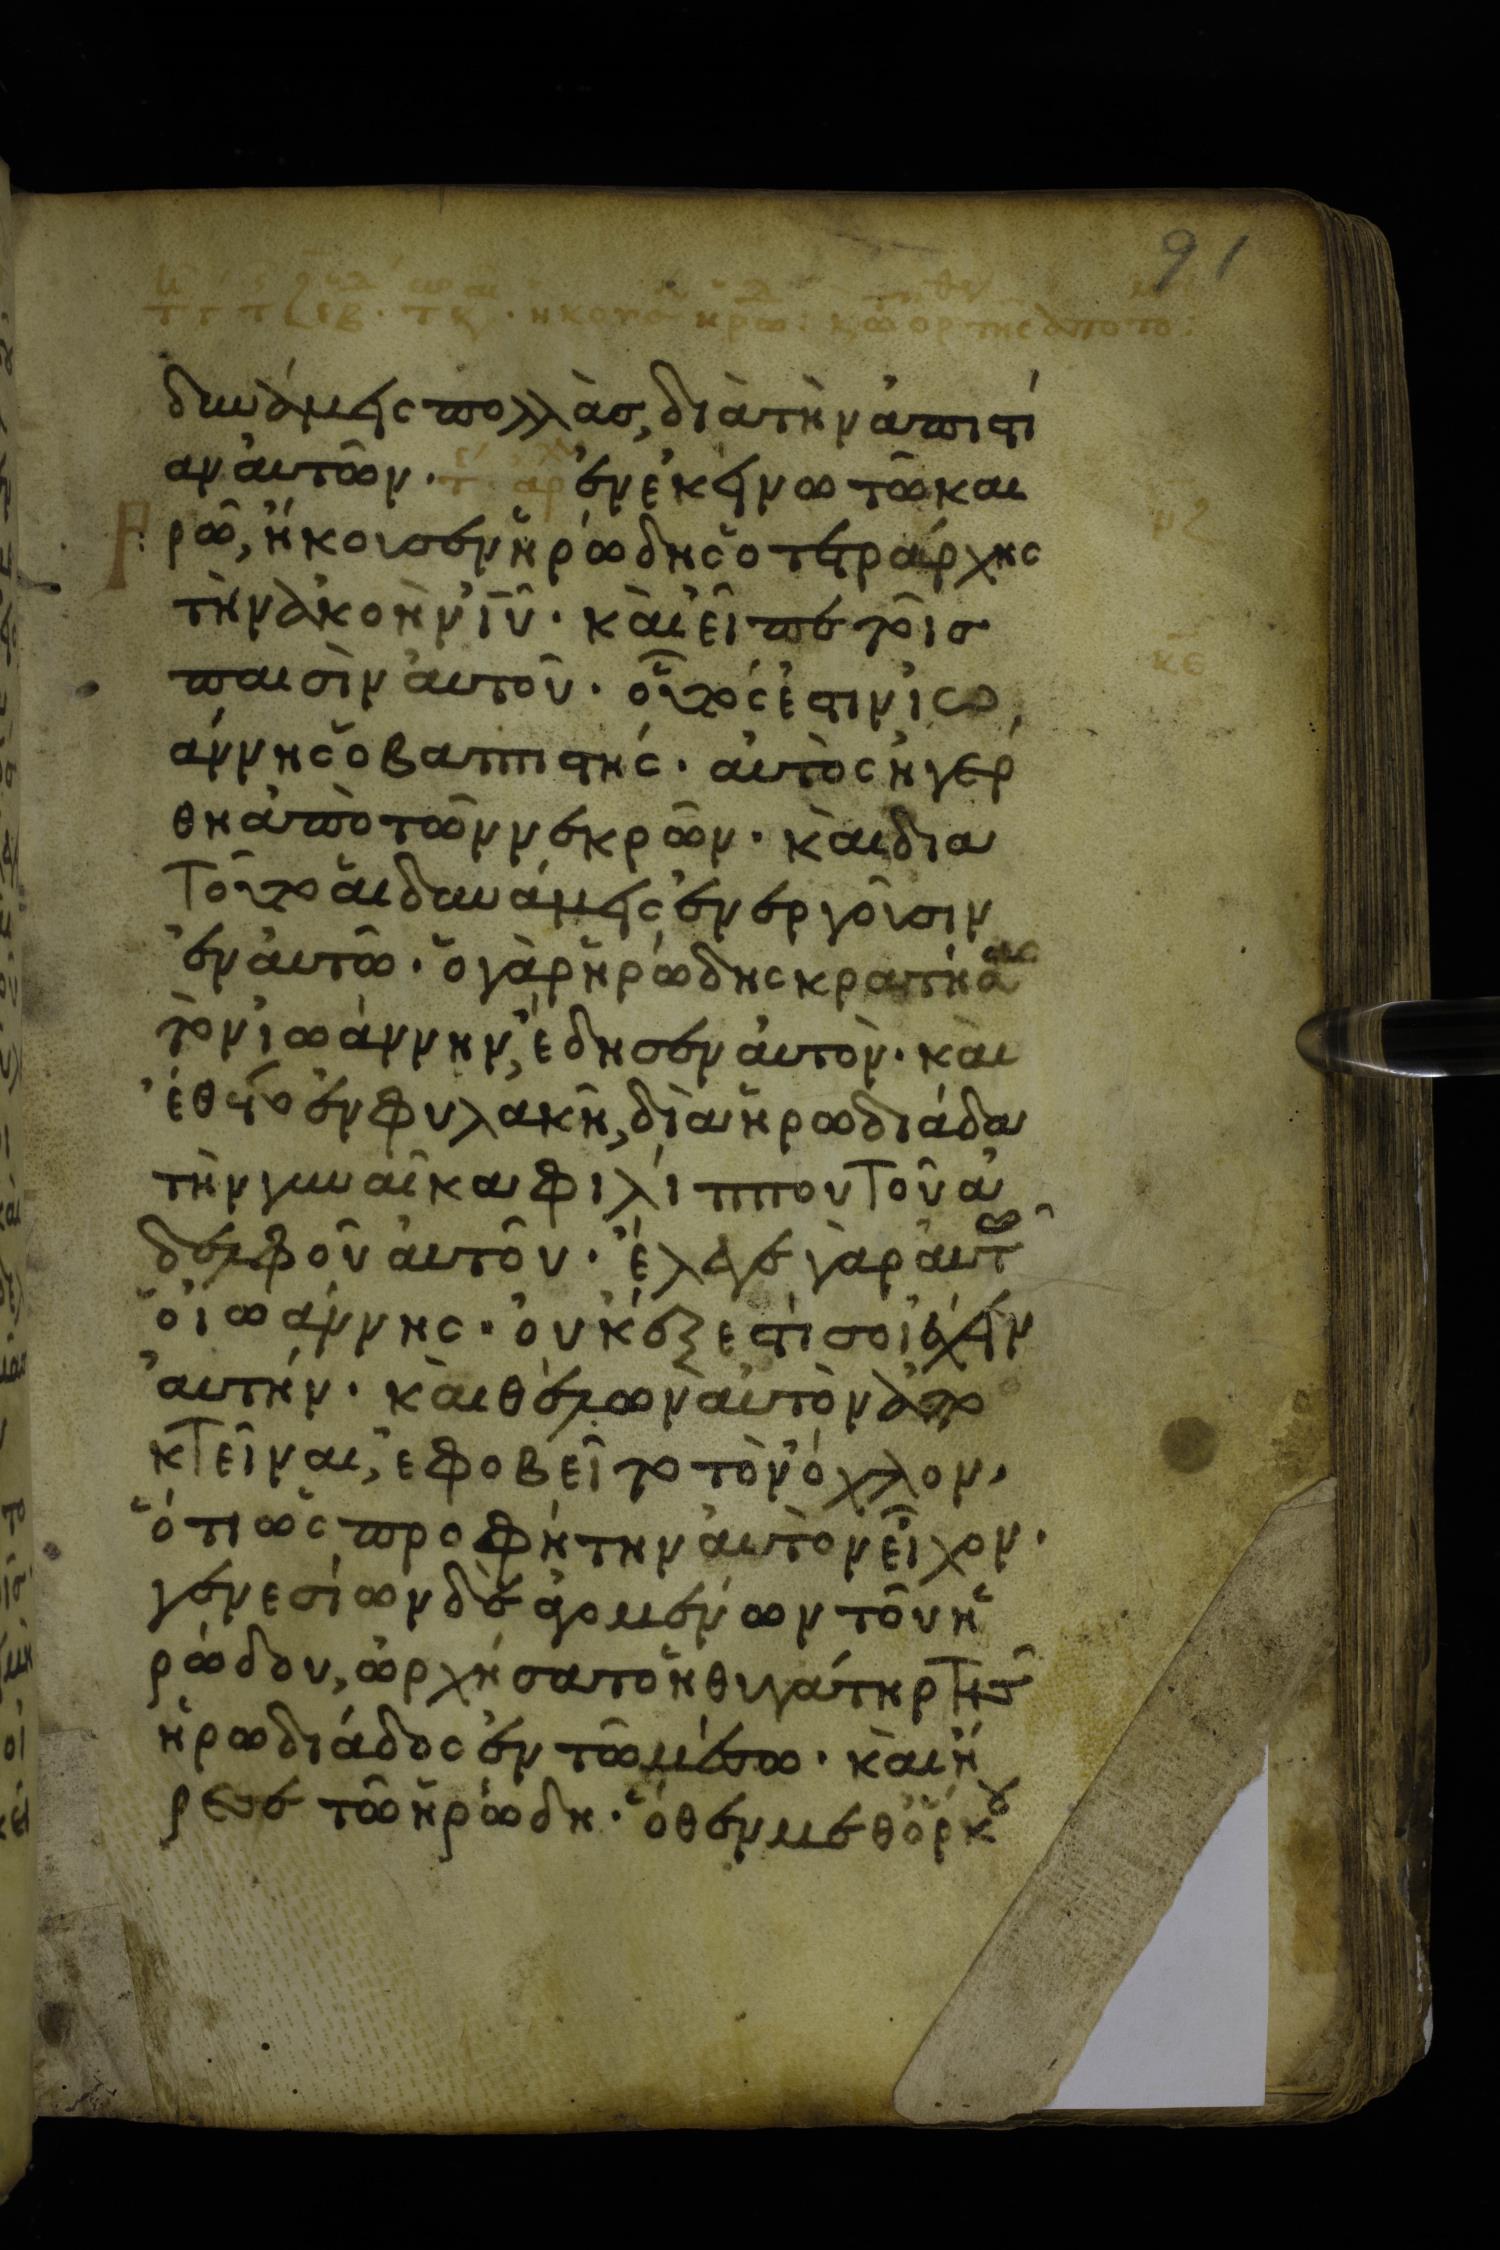 91
δυνάμεις πολλὰσ, διὰ τὴν ἀπιστί
αν ἀυτῶν · ἐν ἐκείνω τῶ και
ρῶ, ἤκουσεν ἡρώδης ὁ τετράρχης
τὴν ἀκοὴν ἰῦ · κὰι εἶπε τοῖσ
παισὶν ἀυτοῦ · οὗτός ἐστιν ἰω
άννης ὁ βαπτιστής · ἀυτὸς ἠγέρ
θη ἀπὸ τῶν νεκρῶν · κὰι δια
τοῦτο ἁι δυνάμεις ἐνεργοῦσιν
ἐν ἀυτῶ · ὁ γὰρ ἡρώδης κρατήσας
τὸν ἰωάννην, ἔδησεν ἀυτὸν · κὰι
ἔθετο ἐν φυλακῆ, διὰ ἡρωδιάδα
τὴν γυναῖκα φιλίππου τοῦ ἀ
δελφοῦ ἀυτοῦ · ἔλεγε γὰρ ἀυτῶ
ὁ ἰωάννης · ὀυκ ἔξεστί σοι ἔχειν
ἀυτήν · κὰι θέλων ἀυτὸν ἀπο
κτεῖναι, ἐφοβεῖτο τὸν ὄχλον,
ὅτι ὡς προφήτην ἀυτὸν εἶχον ·
γενεσίων δὲ ἀγομένων τοῦ ἡ
ρώδου, ὠρχήσατο ἡ θυγάτηρ τῆσ
ἡρωδιάδος ἐν τῶ μέσω · κὰι ἤ
ρεσε τῶ ἡρώδη · ὅθεν μεθ ὅρκου
μζ
κε